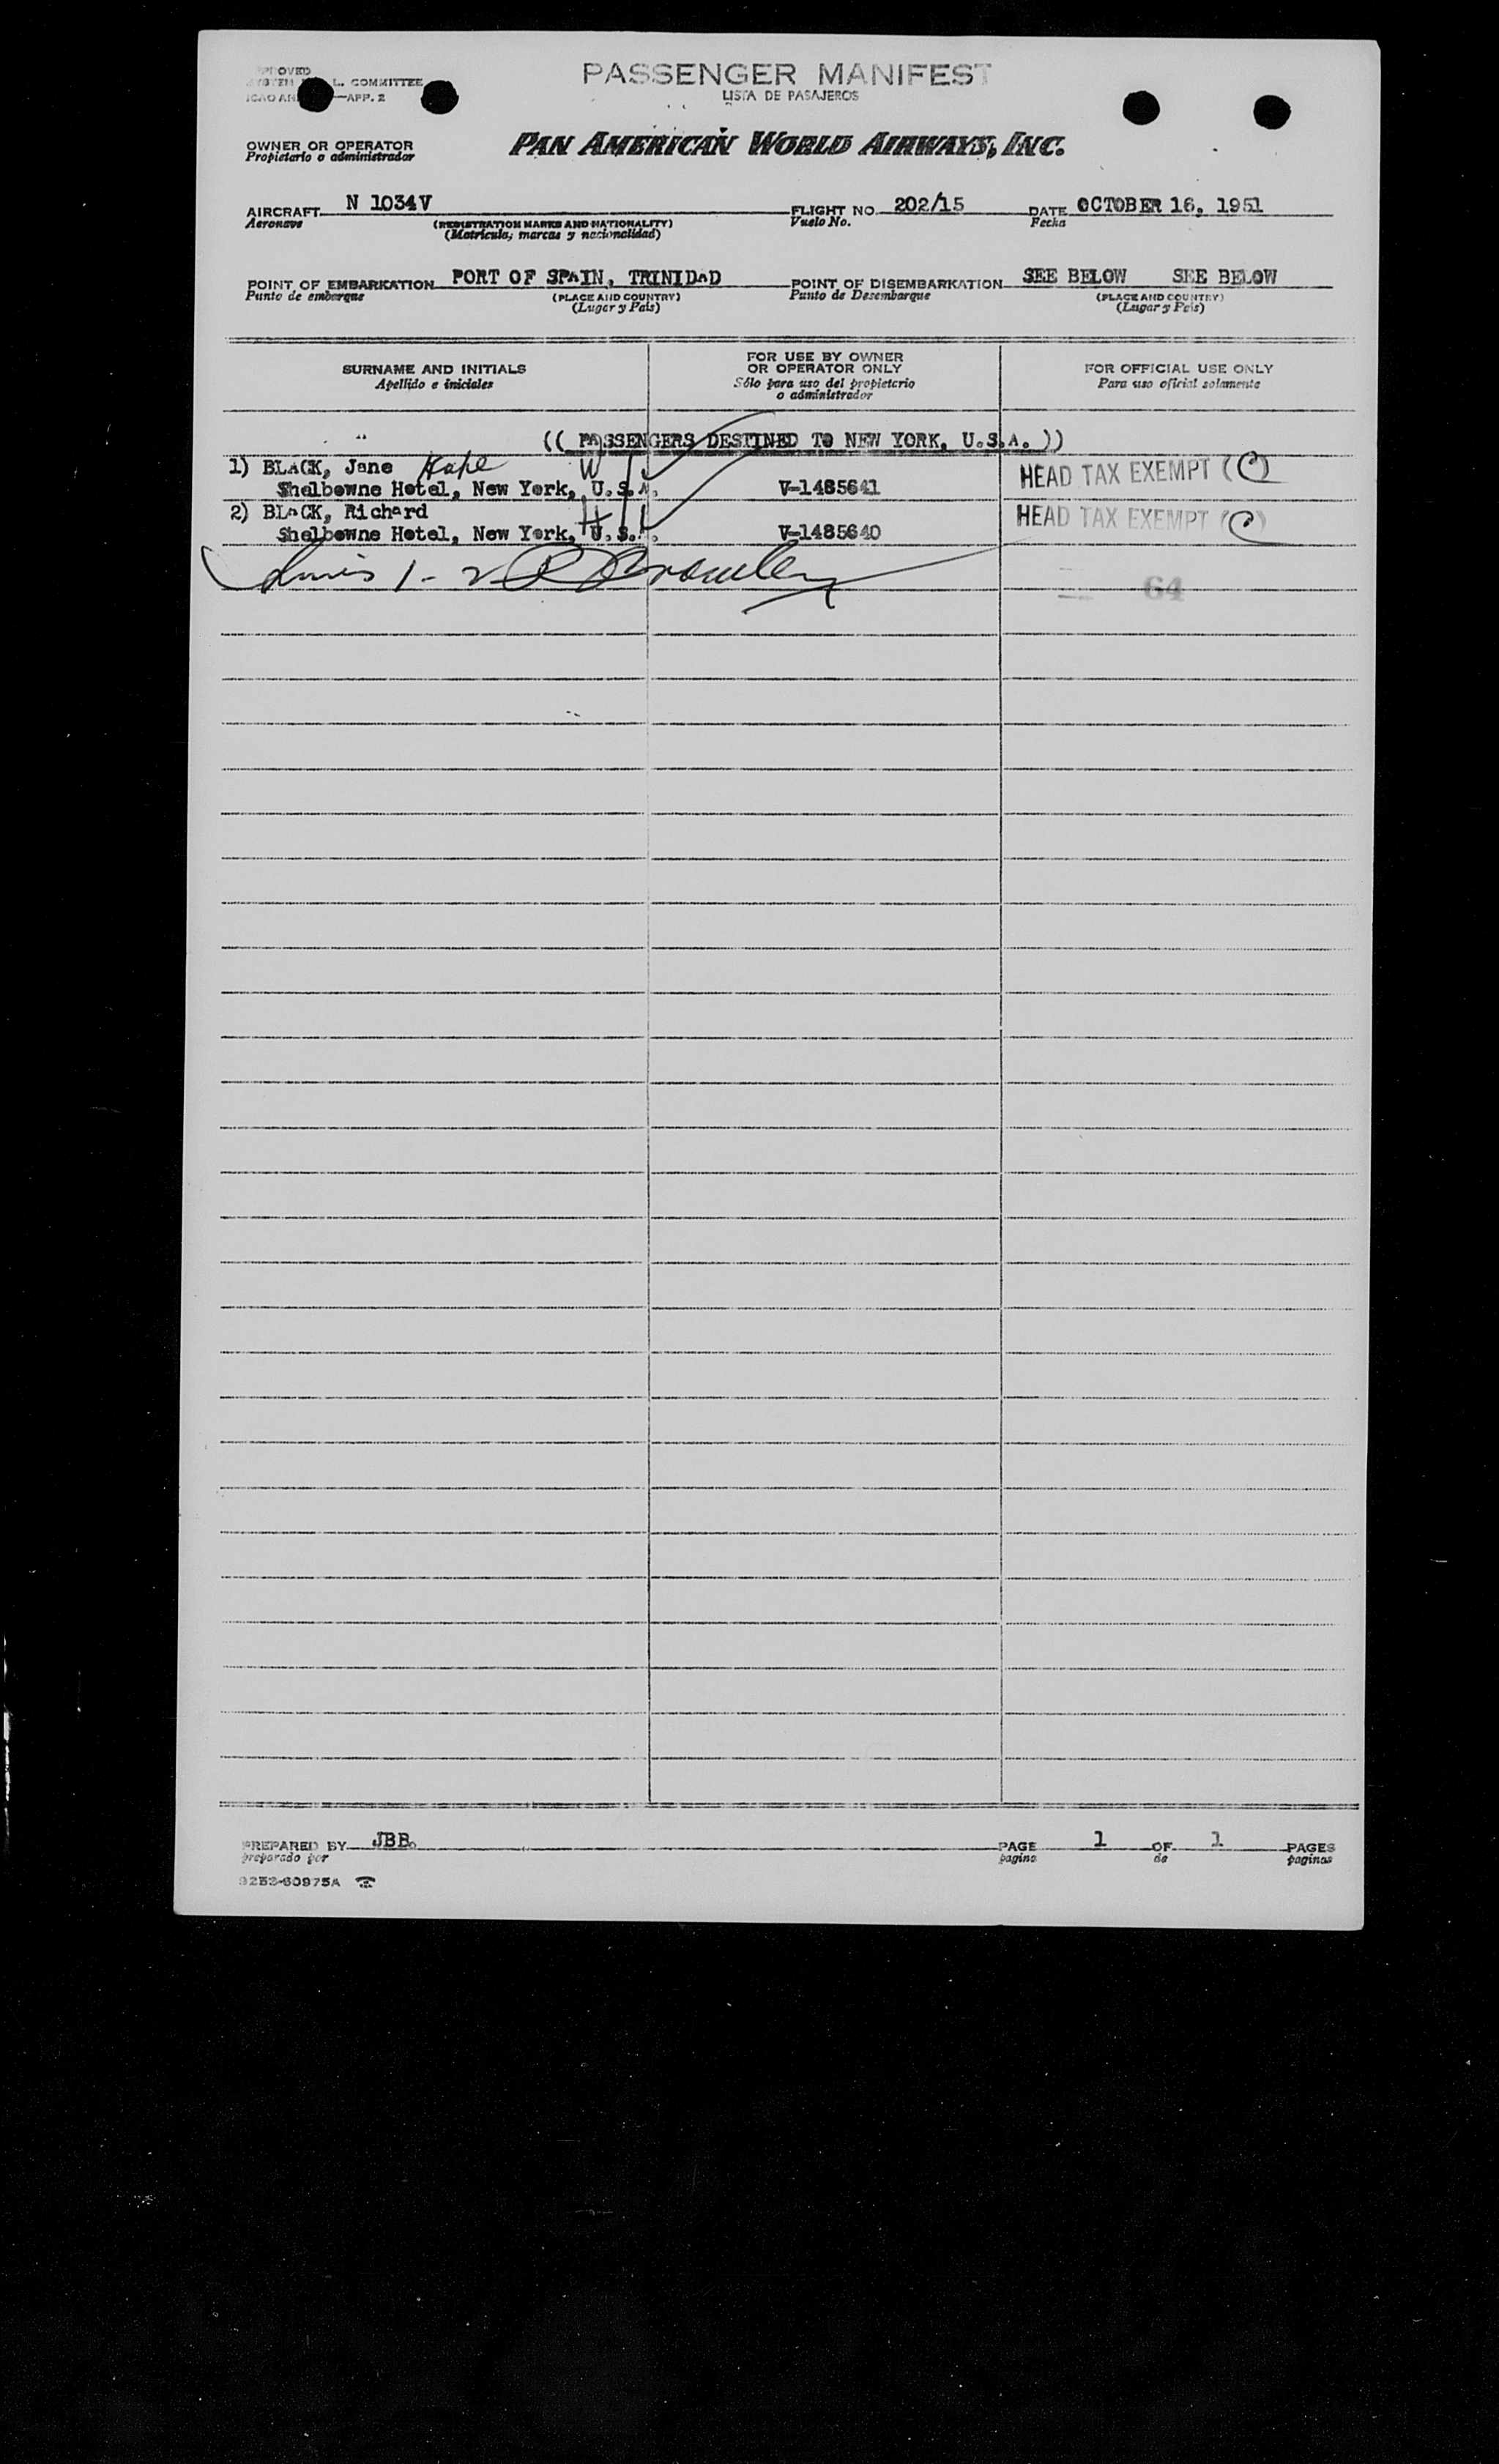 PASSENGER MANIFEST
LISTA DE PASAJEROS
L. COMMITTEE
APP. 2
OWNER OR OPERATOR
Propietario o administrador
PAN AMERICAN WORLD AIRWAYS, INC.
AIRCRAFT N 1034V FLIGHT NO. 202/15 DATE OCTOBER 16, 1951
Aeronave (REGISTRATION MARKS AND NATIONALITY) Vuelo No. Fecha
(Matricula; marcas y nacionalidad)
POINT OF EMBARKATION PORT OF SPAIN, TRINIDAD POINT OF DISEMBARKATION SEE BELOW SEE BELOW
Punto de embarque (PLACE AND COUNTRY) Punto de Desembarque (PLACE AND COUNTRY)
(Lugar y País) (Lugar y País)
SURNAME AND INITIALS
Apellido e iniciales
FOR USE BY OWNER
OR OPERATOR ONLY
Sólo para uso del propietario
o administrador
FOR OFFICIAL USE ONLY
Para uso oficial solamente
(( PASSENGERS DESTINED TO NEW YORK, U.S.A. ))
1) BLACK, Jane
Shelbowne Hotel, New York, U.S.A. V-1485641 HEAD TAX EXEMPT (C)
2) BLACK, Richard
Shelbowne Hotel, New York, U.S.A. V-1485640 HEAD TAX EXEMPT (C)
1 - 2
64
PREPARED BY JBB. PAGE 1 OF 1 PAGES
preparado por pagina de paginas
9253-60975A